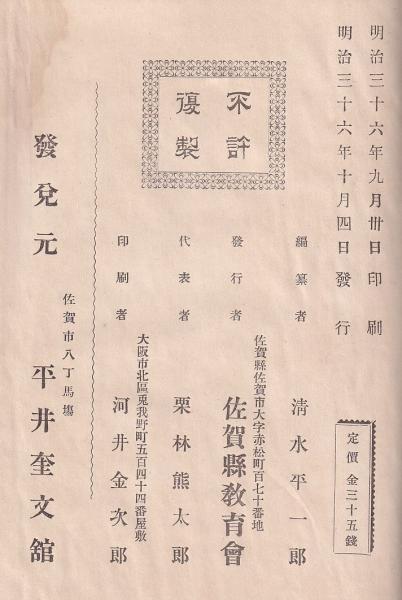 明治三十六年九月卅日印刷
明治三十六年十月四日發行
不許
復製
定價 金三十五錢
編纂者 清水平一郎
佐賀縣佐賀市大字赤松町百七十番地
發行者 佐賀縣敎育會
代表者 栗林熊太郎
大阪市北區兎我野町五百四十四番屋敷
印刷者 河井金次郎
佐賀市八丁馬塲
發兌元 平井奎文舘